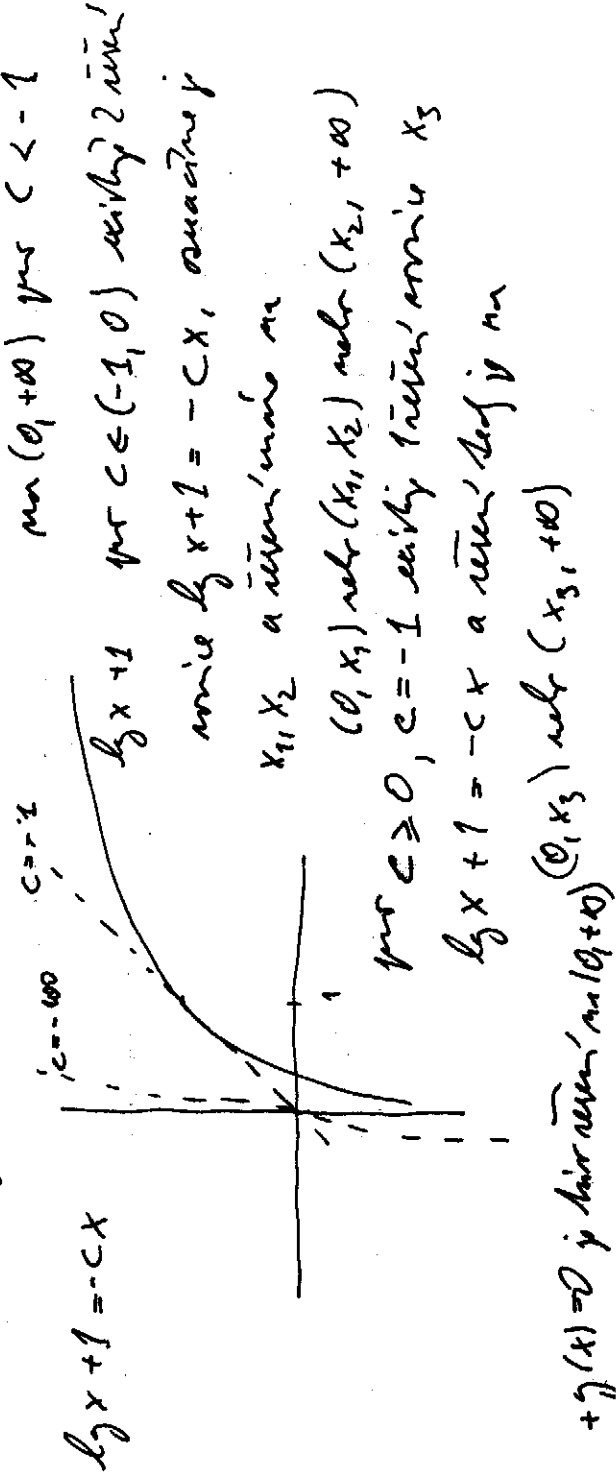 na (0, +∞) pro C < -1
lg x + 1 = -Cx
c = -100
c = -1
lg x + 1
1
pro C ∈ (-1, 0) existují 2 řešení
rovnice lg x + 1 = -Cx, označíme je
x₁, x₂ a řešení máme na
(0, x₁) nebo (x₁, x₂) nebo (x₂, +∞)
pro C ≥ 0, C = -1 existuje 1 řešení rovnice x₃
lg x + 1 = -Cx a řešení tedy je na
(0, x₃) nebo (x₃, +∞)
+ y(x) = 0 je řešení na (0, +∞)